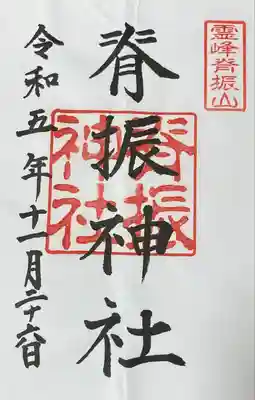 霊峰脊振山
脊振神社
脊振神社
令和五年十一月二十六日